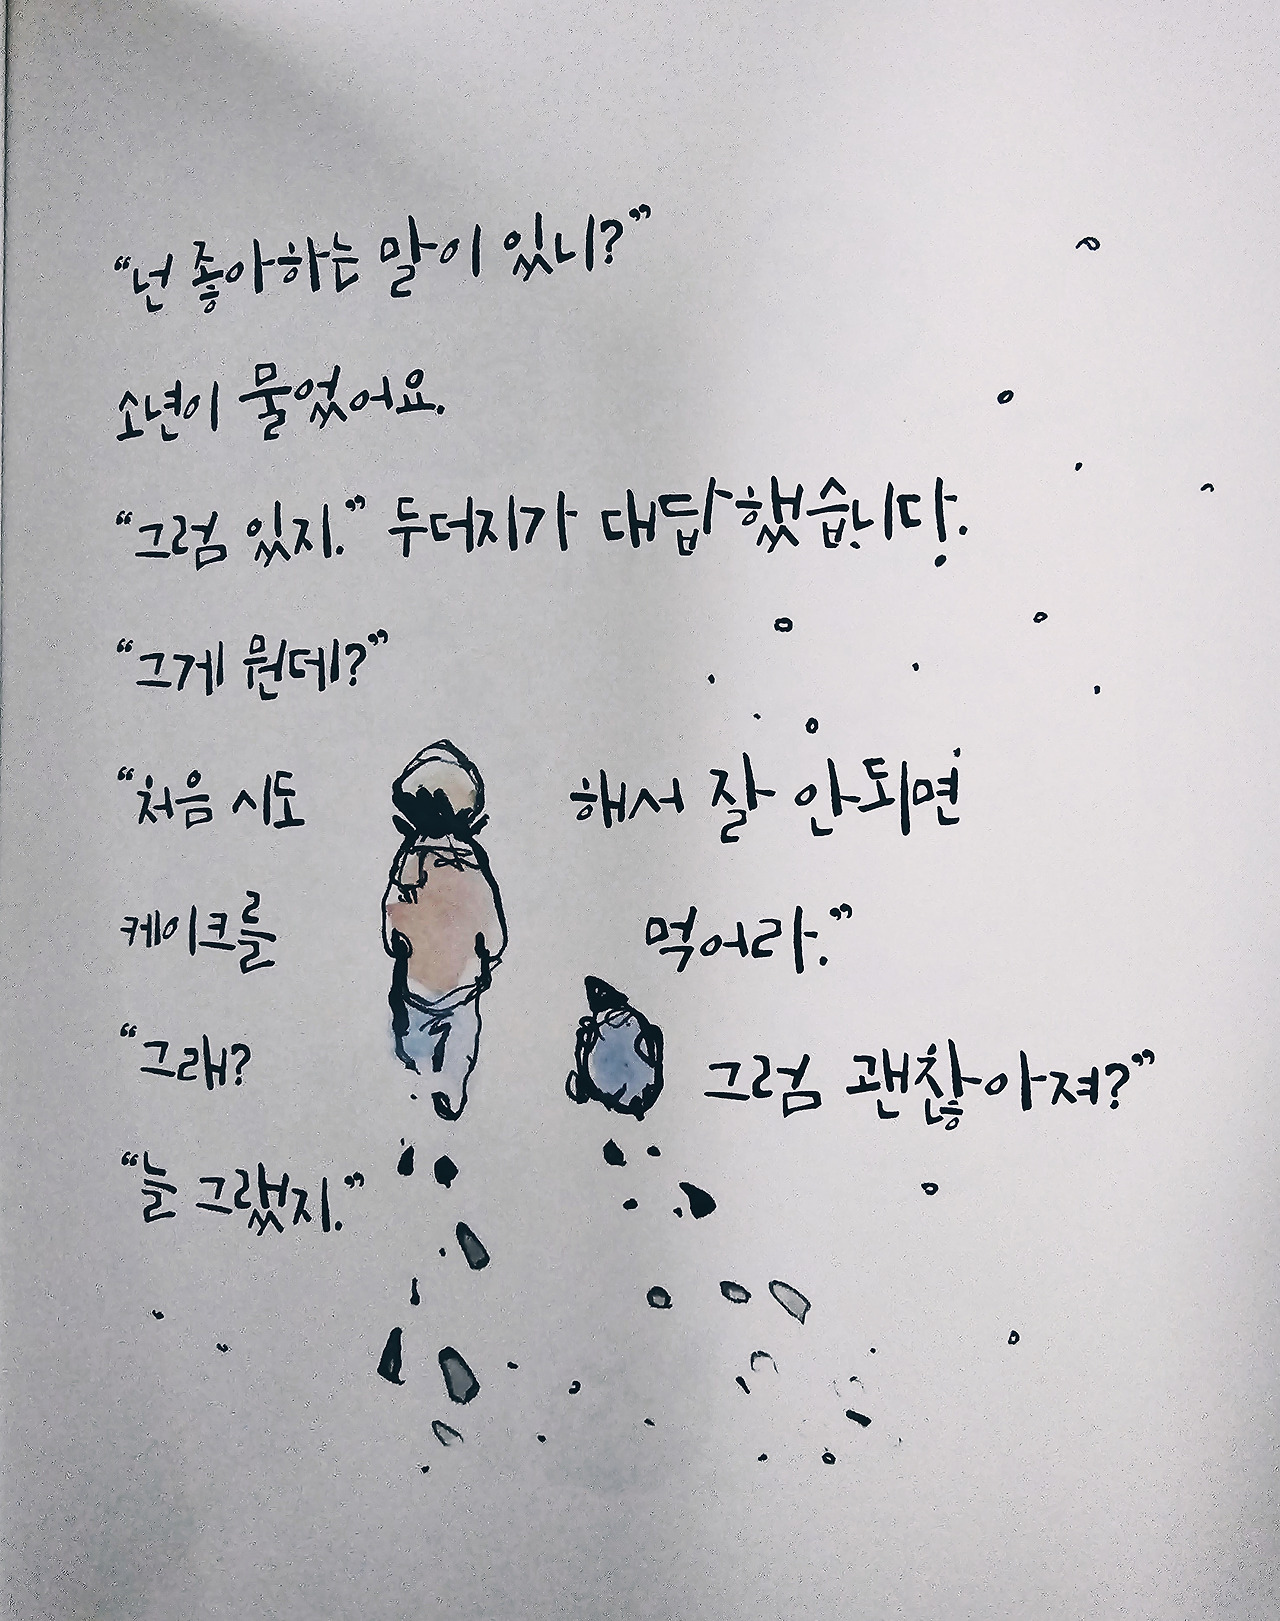 “넌 좋아하는 말이 있니?”
소년이 물었어요.
“그럼 있지.” 두더지가 대답했습니다.
“그게 뭔데?”
“처음 시도해서 잘 안되면
케이크를 먹어라.”
“그래? 그럼 괜찮아져?”
“늘 그랬지.”